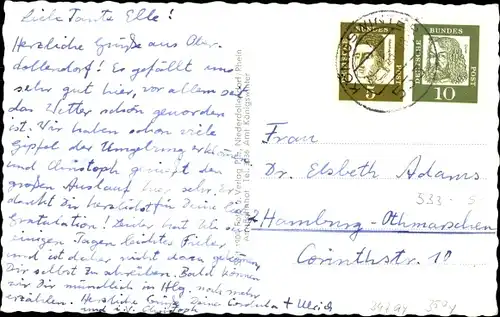 Liebe Tante Elle!
Herzliche Grüße aus Ober-
dollendorf! Es gefällt uns
sehr gut hier, vor allem seit
das Wetter schön geworden
ist. Wir haben schon viele
Gipfel der Umgebung erklommen
und Christoph genießt den
großen Auslauf hier sehr. Er
dankt Dir herzlich für Deine
Gratulation! Leider hat
einigen Tagen leichtes Fieber
und ist daher nicht dazu gekommen,
Dir selbst zu schreiben. Bald können
wir Dir mündlich in Hbg. noch mehr
erzählen. Herzliche Grüße Deine Cordula + Ulrich
und Christoph
Verlag Niederdollendorf/Rhein
Tel. Amt Königswinter
DEUTSCHE BUNDESPOST
5
DEUTSCHE BUNDESPOST
10
Frau
Dr. Elsbeth Adams
2 Hamburg-Othmarschen
Corinthstr. 10